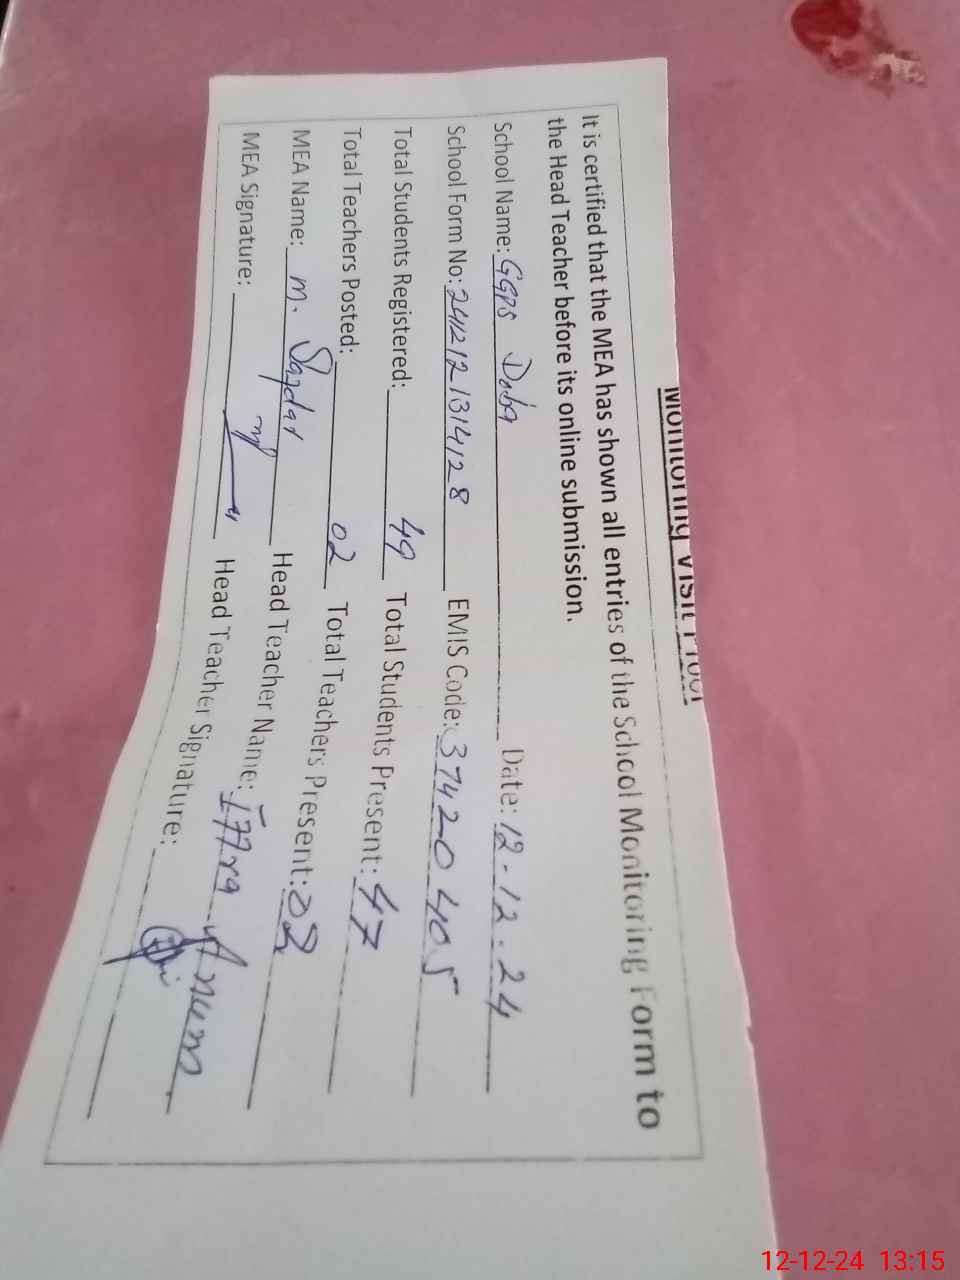 Monitoring Visit Proof
It is certified that the MEA has shown all entries of the School Monitoring Form to
the Head Teacher before its online submission.
School Name: GGPS Doba Date: 12-12-24
School Form No: 2412121314128 EMIS Code: 37420405
Total Students Registered: 49 Total Students Present: 47
Total Teachers Posted: 02 Total Teachers Present: 02
MEA Name: M. Safdar Head Teacher Name: Iffra Anum
MEA Signature: Head Teacher Signature:
12-12-24 13:15